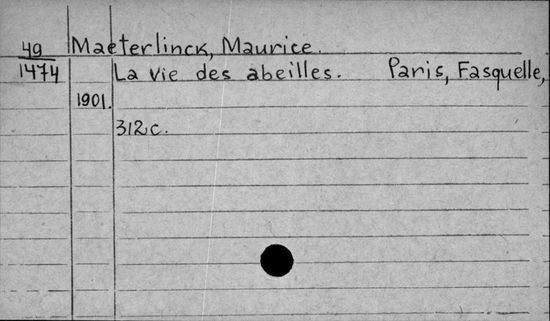 49 Maeterlinck, Maurice.
1474 La vie des abeilles. Paris, Fasquelle,
1901.
312c.